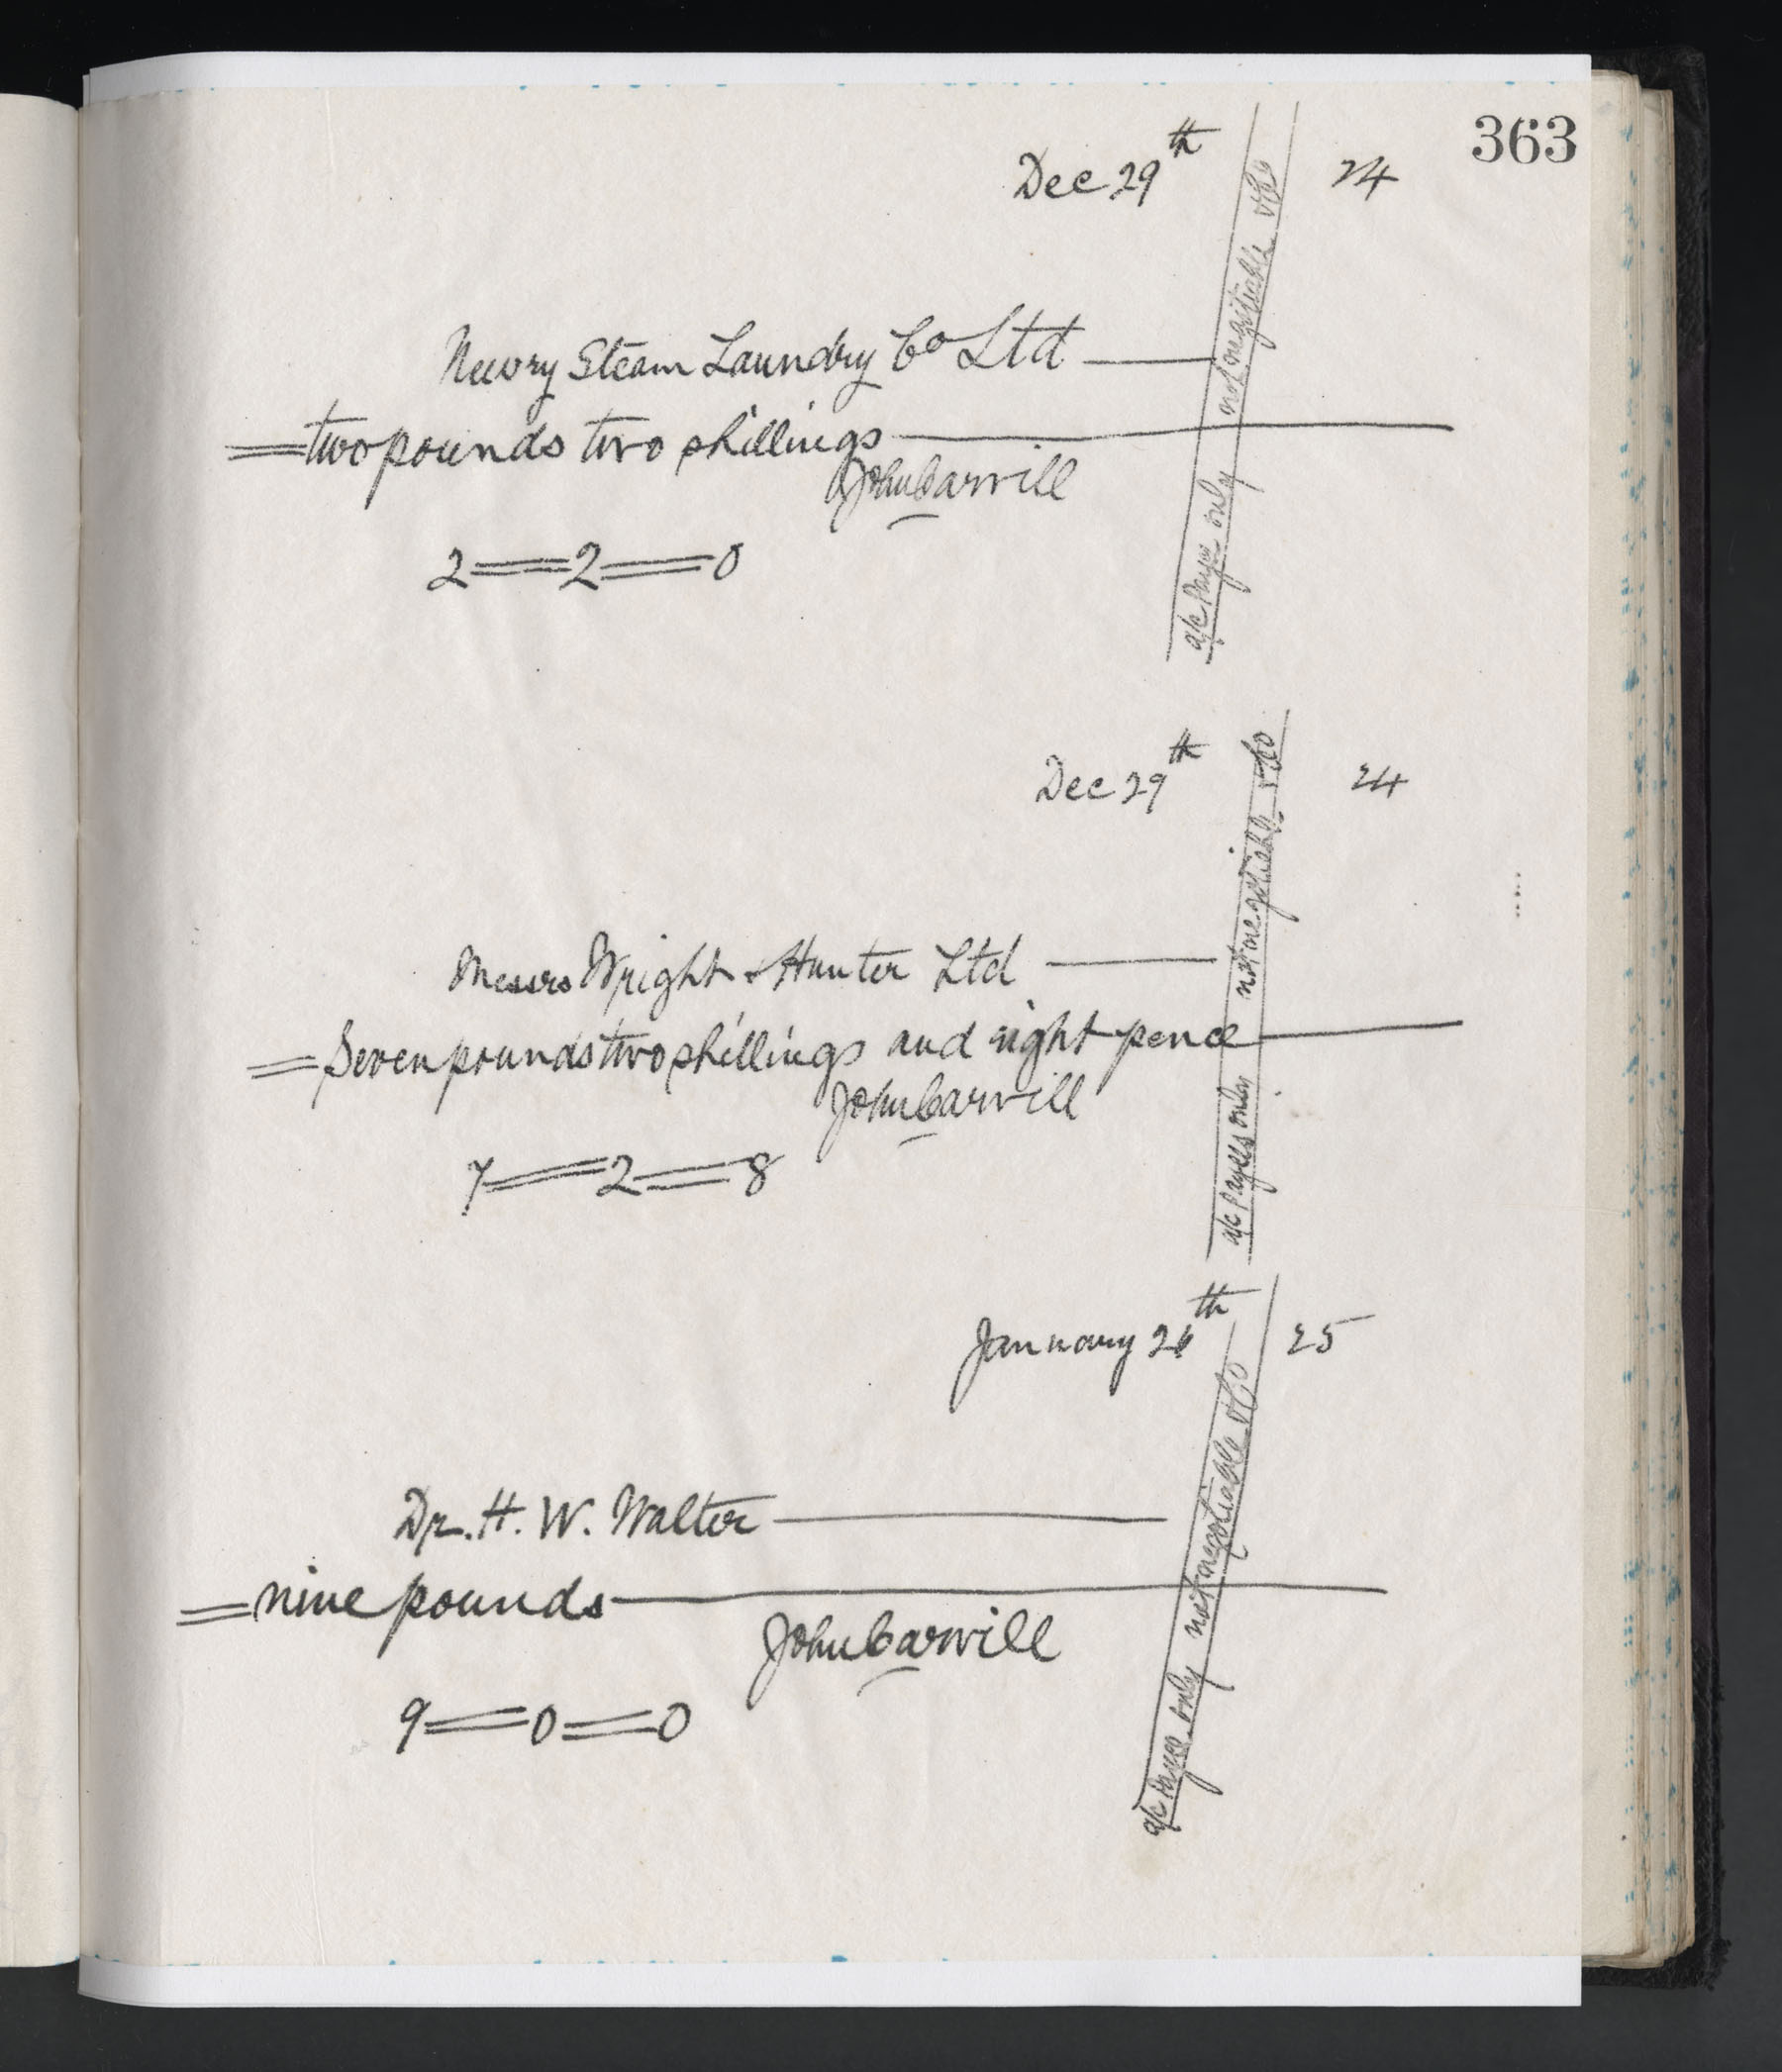 363
Dec 29th 24
Newry Steam Laundry Co Ltd
two pounds two shillings
John Carvill
2 = 2 = 0
a/c payee only not negotiable & Co
Dec 29th 24
Messrs Wright & Hunter Ltd
Seven pounds two shillings and eight pence
John Carvill
7 = 2 = 8
a/c payees only not negotiable & Co
January 26th 25
Dr. H. W. Walter
nine pounds
John Carvill
9 = 0 = 0
a/c payee only not negotiable & Co